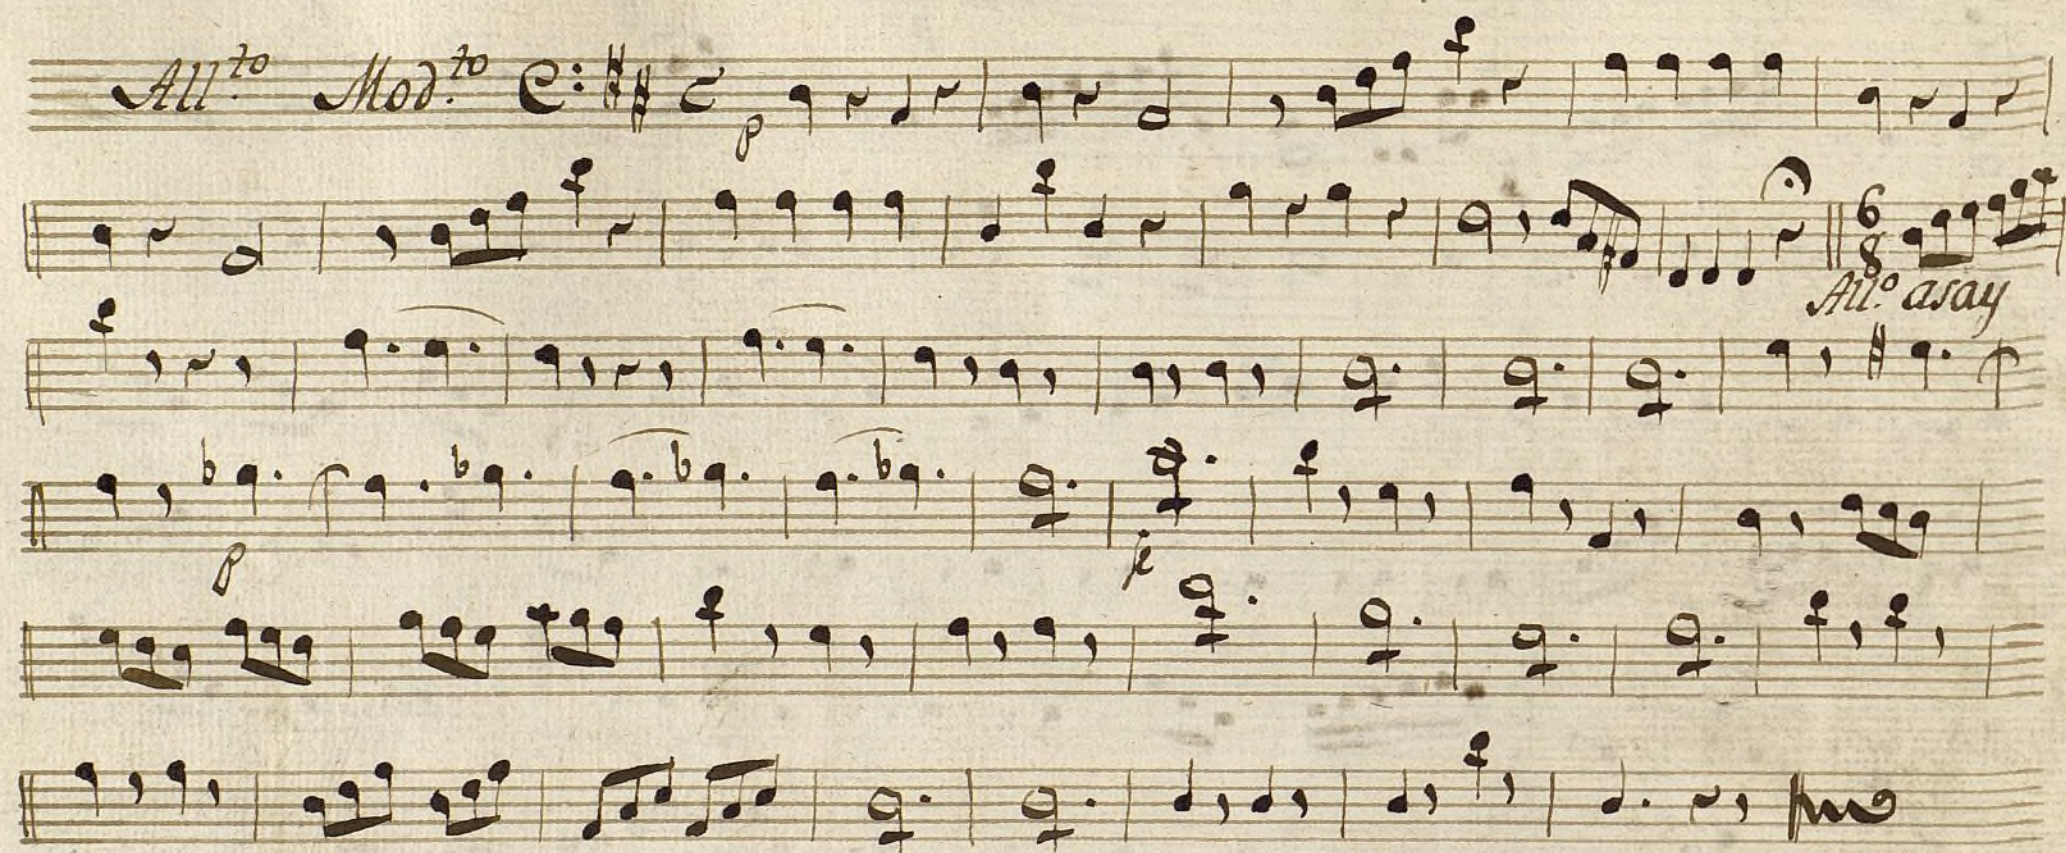 All.to Mod.to
p
6
8
All.o asay
p
f